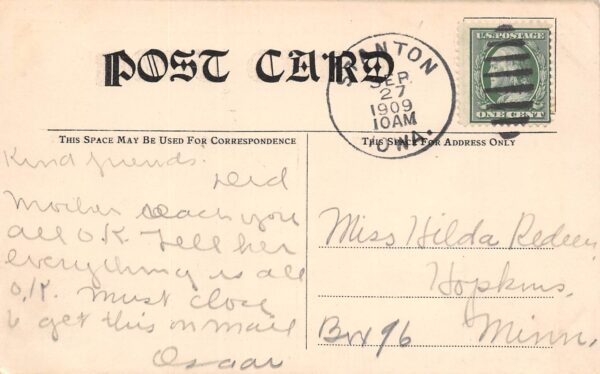 POST CARD
STANTON
SEP.
27
1909
10AM
IOWA.
U.S. POSTAGE
ONE CENT
THIS SPACE MAY BE USED FOR CORRESPONDENCE
THIS SPACE FOR ADDRESS ONLY
Kind friends.
Did
Mother reach you
all O.K. Tell her
everything is all
O.K. Must close
to get this on mail
Oscar
Miss Hilda Redeen
Hopkins.
Box 96 Minn.